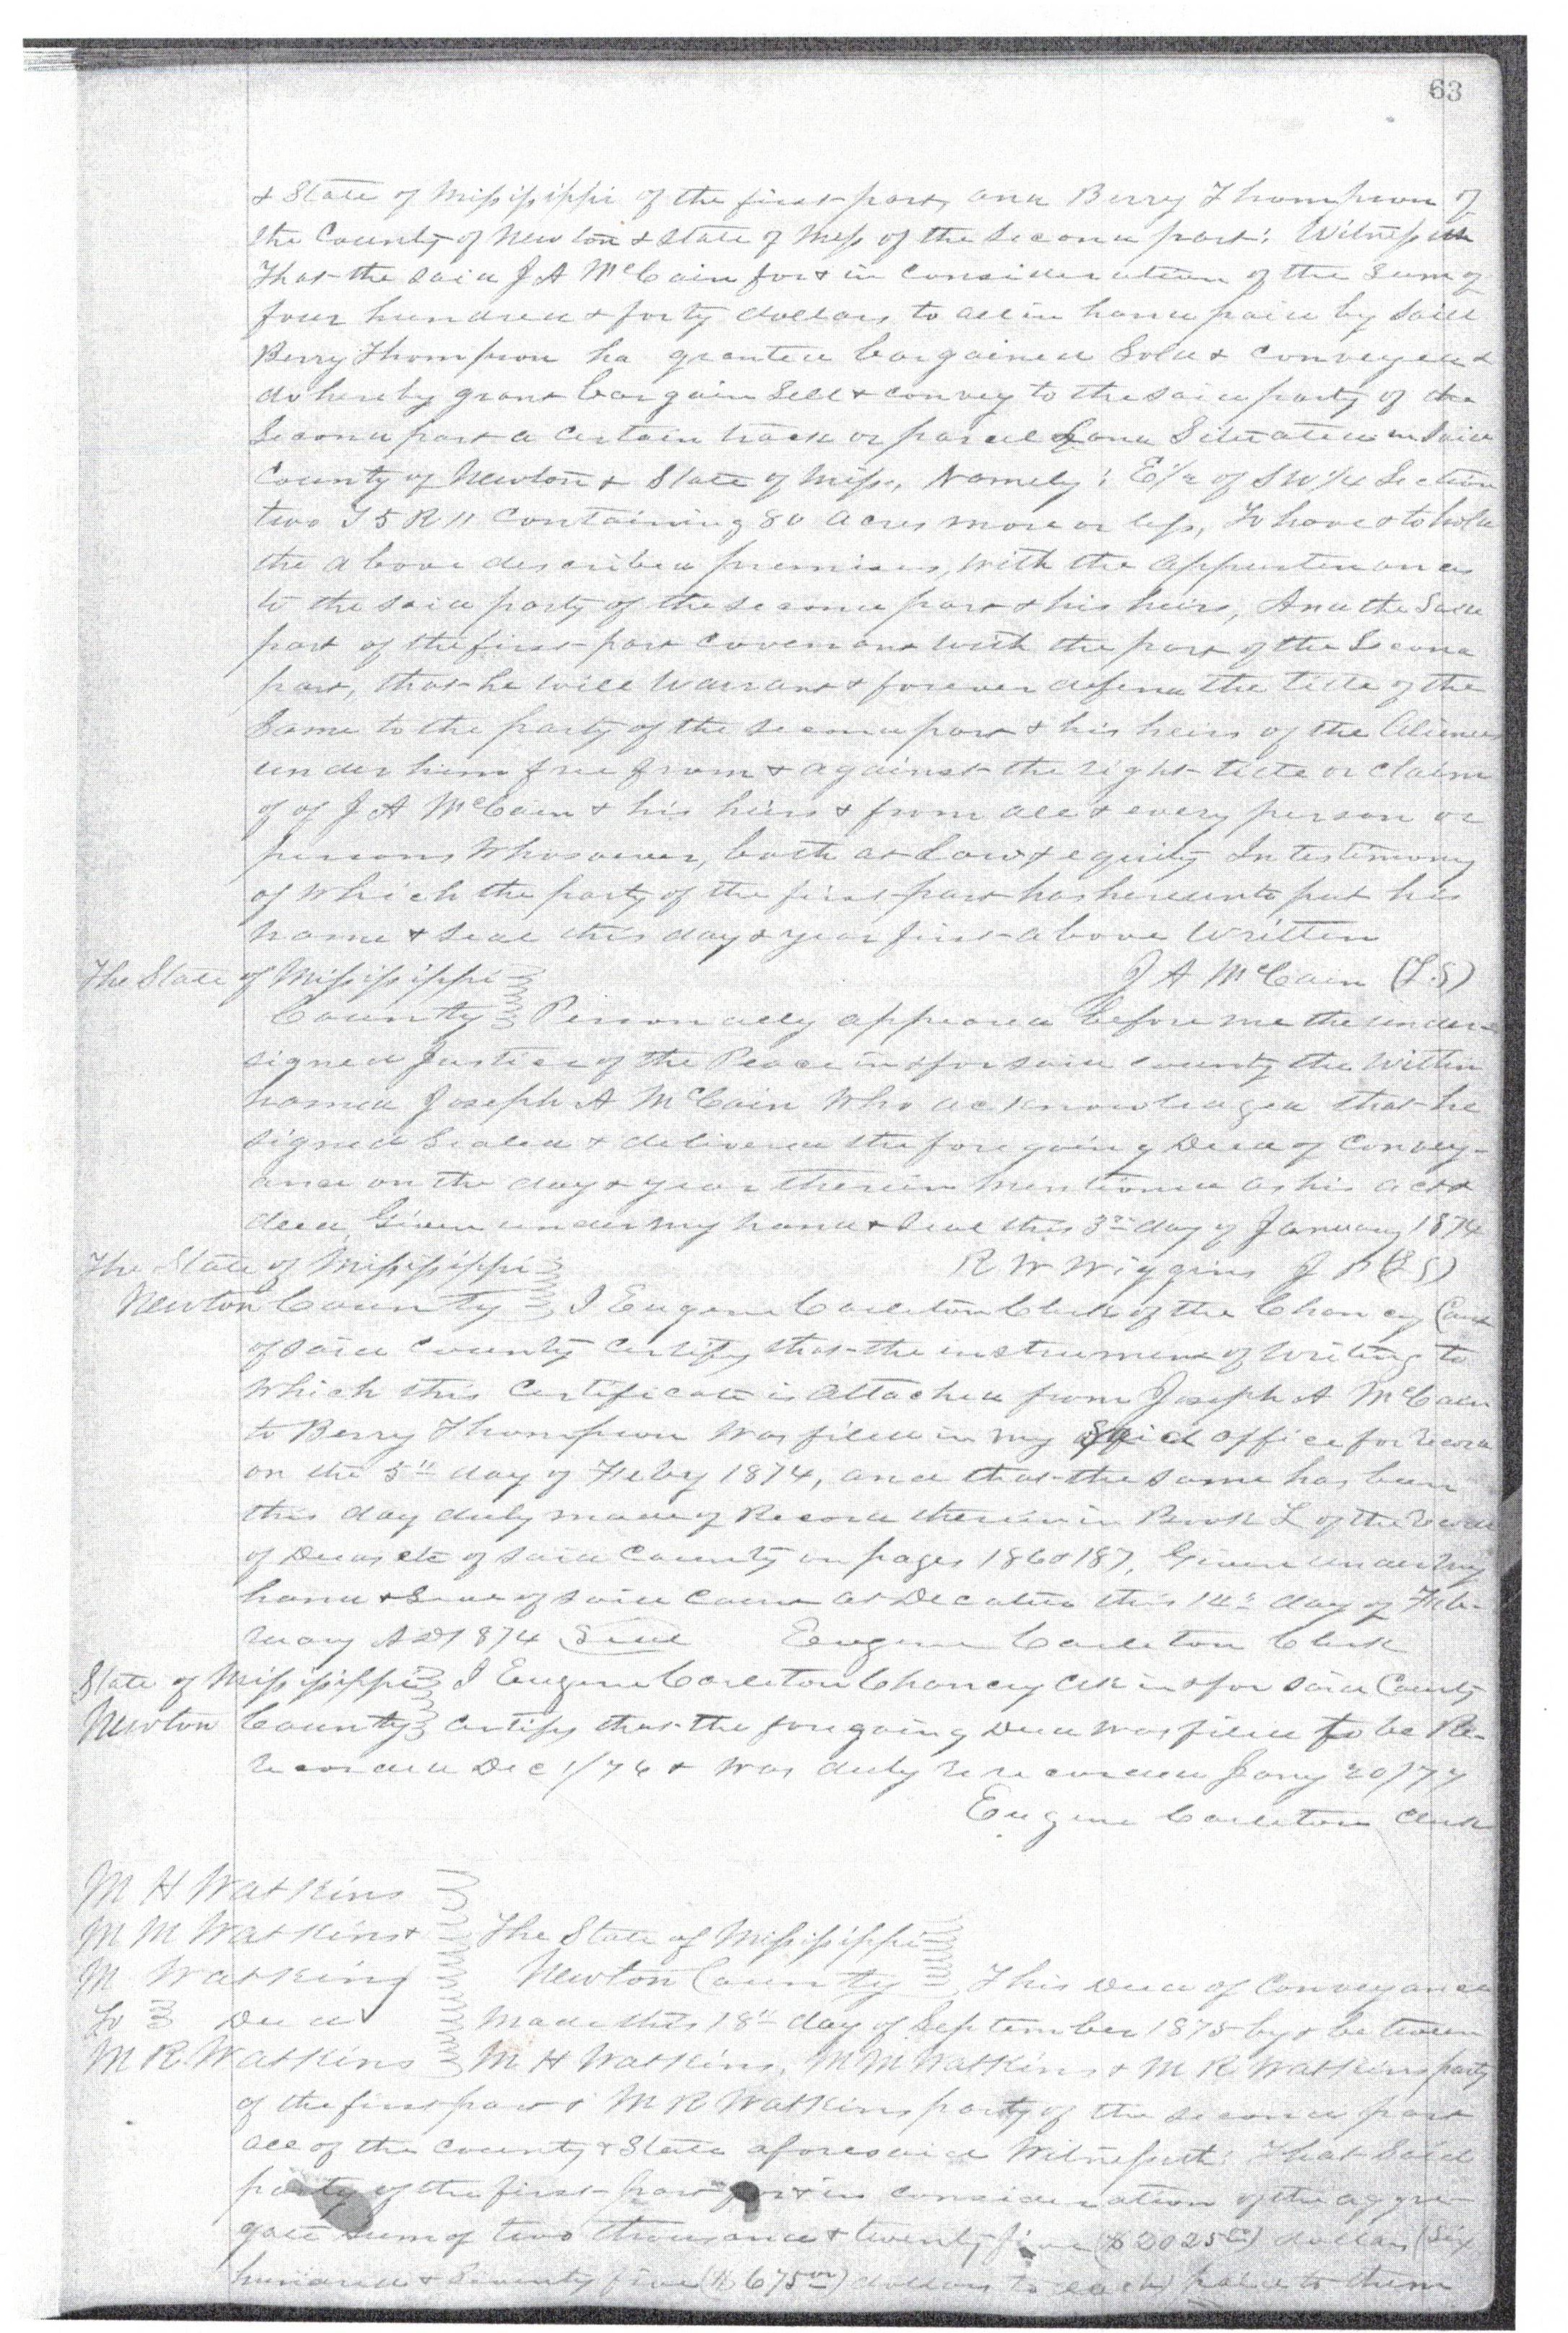 63
& State of Mississippi of the first part, and Berry Thompson of
the County of Newton & State of Miss of the second part: Witnesseth
That the said J A McCain for & in consideration of the sum of
four hundred & forty dollars, to all in hand paid by said
Berry Thompson ha granted bargained Sold & conveyed &
do hereby grant bargain Sell & convey to the said party of the
Second part a certain track or parcel Land Situated in Said
County of Newton & State of Miss, Namely: E 1/2 of SW 1/4 Section
two T 5 R 11 Containing 80 acres more or less, To have & to hold
the above described premises, with the appurtenances
to the said party of the second part & his heirs, And the Said
part of the first part Covenant with the part of the Second
part, that he will Warrant & forever defend the title of the
Same to the party of the second part & his heirs of the Alienees
under him free from & against the right title or claim
of of J A McCain & his heirs & from all & every person or
persons Whosoever, both at Law & equity In testimony
of which the party of the first part has hereunto put his
name & seal this day & year first above Written
J A McCain (L.S)
The State of Mississippi
County Personally appeared before me the under-
signed Justice of the Peace in & for said county the Within
named Joseph A McCain Who acknowledged that he
signed Sealed & delivered the foregoing Deed of Convey-
ance on the day & year therein mentioned as his act &
deed, Given under my hand & Seal this 3rd day of January 1874
R W Wiggins J P (L S)
The State of Mississippi
Newton County I Eugene Carleton Clerk of the Chancy Court
of said County Certify that the instrument of Writing to
Which this Certificate is attached from Joseph A McCain
to Berry Thompson Was filed in my Said office for record
on the 5th day of Feby 1874, and that the same has been
this day duly made of Record therein in Book L of the record
of Deeds etc of said County on pages 186 & 187, Given under my
hand & Seal of said Court at Decatur this 14th day of Feb-
ruary AD 1874 Seal Eugene Carleton Clerk
State of Mississippi I Eugene Carleton Chancy Clk in & for said County
Newton County Certify that the foregoing Deed was filed to be Re-
recorded Dec 1/76 & Was duly re recorded Jany 20/77
Eugene Carleton Clerk
M H Watkins
M M Watkins & The State of Mississippi
M Watkins Newton County This Deed of Conveyance
To Deed Made this 18th day of September 1875 by & between
M R Watkins M H Watkins, M M Watkins & M R Watkins party
of the first part & M R Watkins party of the second part
all of the County & State aforesaid Witnesseth: That Said
party of the first part for & in consideration of the aggre-
gate sum of two thousand & twenty five ($2025.00) dollars (Six
hundred & Seventy five ($675.00) dollars to each) paid to them